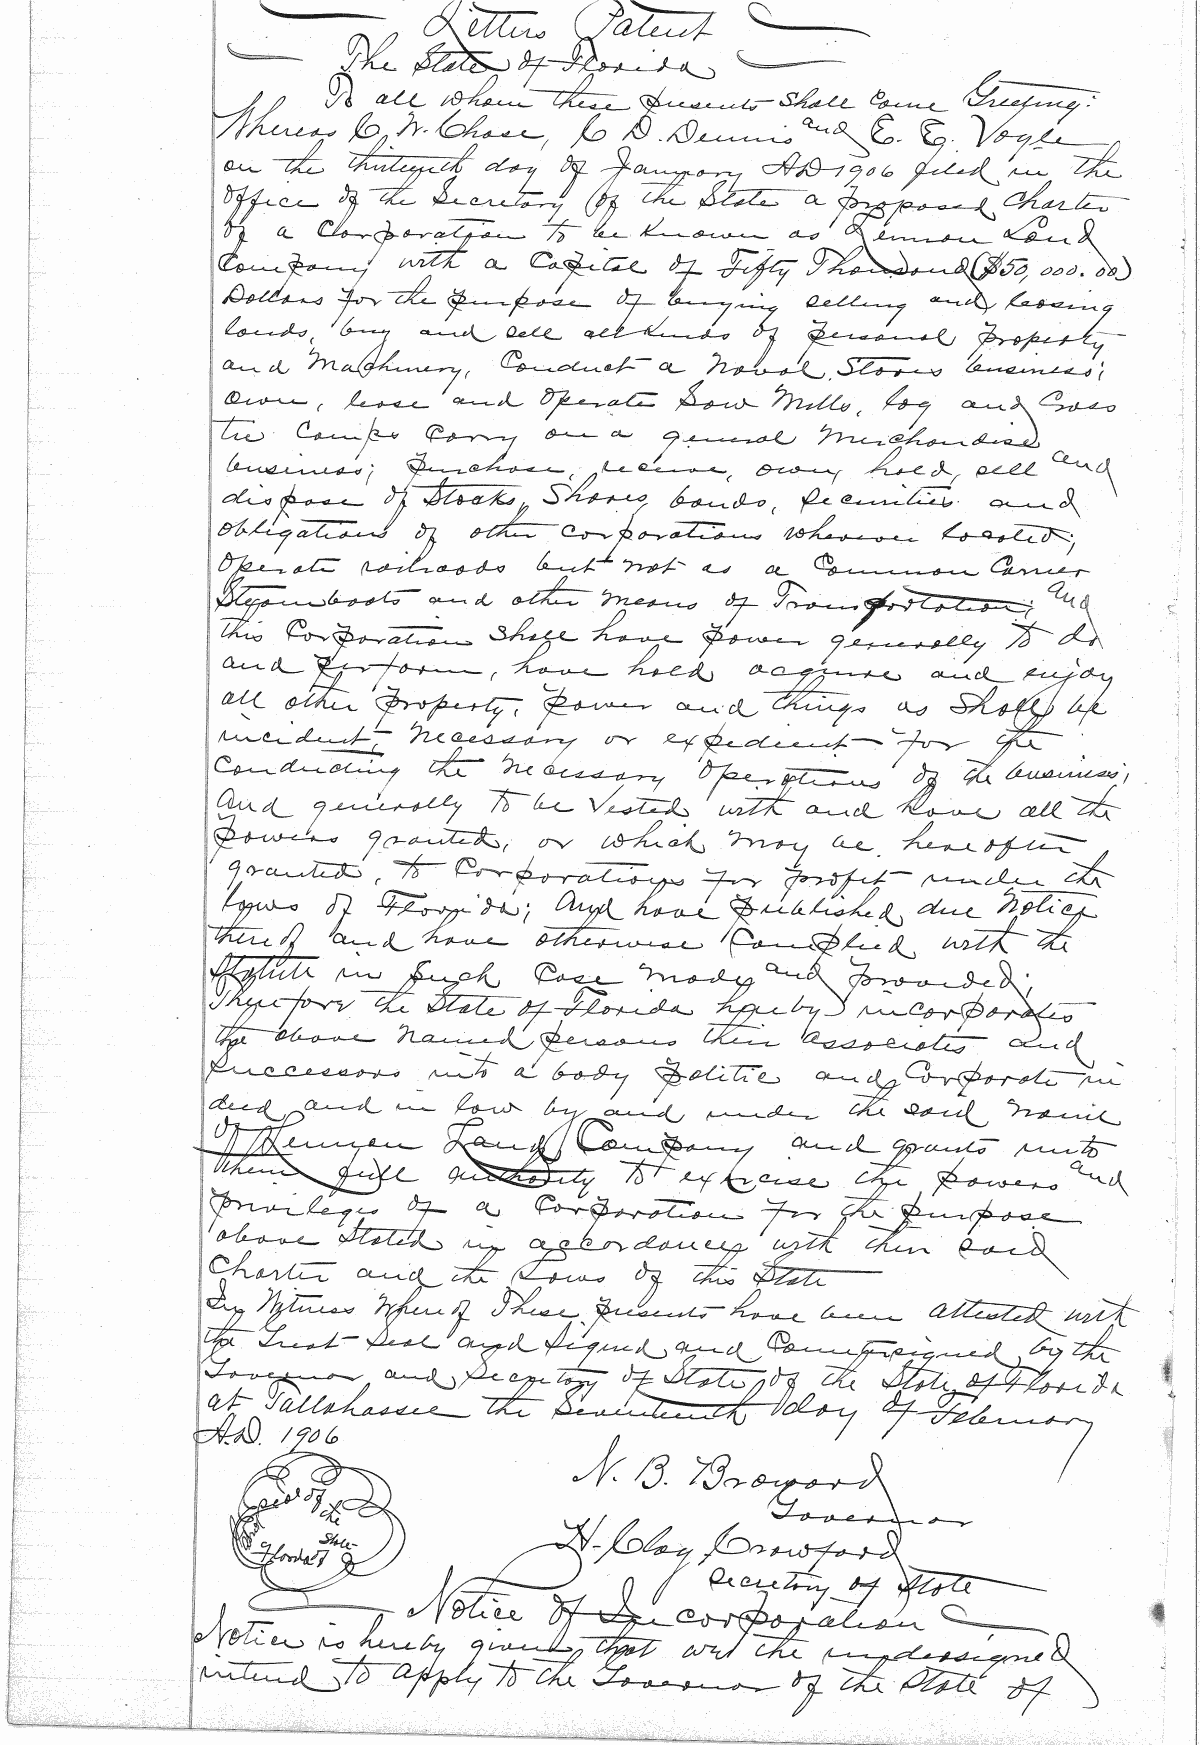 Letters Patent
The State of Florida
To all whom these presents shall come Greeting:
Whereas C. W. Chase, C D. Dennis and E. E. Vogle
on the thirteenth day of January AD 1906 filed in the
office of the Secretary of the State a proposed Charter
of a Corporation to be known as Lennon Land
Company with a Capital of Fifty Thousand ($50,000.00)
Dollars for the purpose of buying selling and leasing
lands, buy and sell all kinds of personal property
and Machinery, Conduct a Naval Stores business;
own, lease and operate Saw Mills, log and Cross
tie Camps Carry on a general Merchandise
business; purchase, receive, own, hold, sell and
dispose of Stocks, Shares, bonds, securities and
obligations of other Corporations wherever located;
operate railroads but not as a Common Carrier
Steamboats and other means of Transportation; and
this Corporation shall have power generally to do
and perform, have hold acquire and enjoy
all other property, power and things as shall be
incident, necessary or expedient for the
Conducting the necessary operations of the business;
And generally to be vested with and have all the
powers granted, or which may be hereafter
granted, to Corporations for profit under the
laws of Florida; And have published due Notice
thereof and have otherwise Complied with the
Statute in such Case made and provided;
Therefore the State of Florida hereby incorporates
the above named persons their associates and
successors into a body politic and Corporate in
deed and in law by and under the said name
of Lennon Land Company and grants unto
them full authority to exercise the powers and
privileges of a Corporation for the purpose
above stated in accordance with their said
Charter and the Laws of this State
In Witness Whereof These presents have been attested with
the Great Seal and Signed and Countersigned by the
Governor and Secretary of State of the State of Florida
at Tallahassee the Seventeenth day of February
A.D. 1906
N. B. Broward
Governor
Seal of
the
State
Florida
H. Clay Crawford
Secretary of State
Notice of Incorporation
Notice is hereby given that we the undersigned
intend to apply to the Governor of the State of